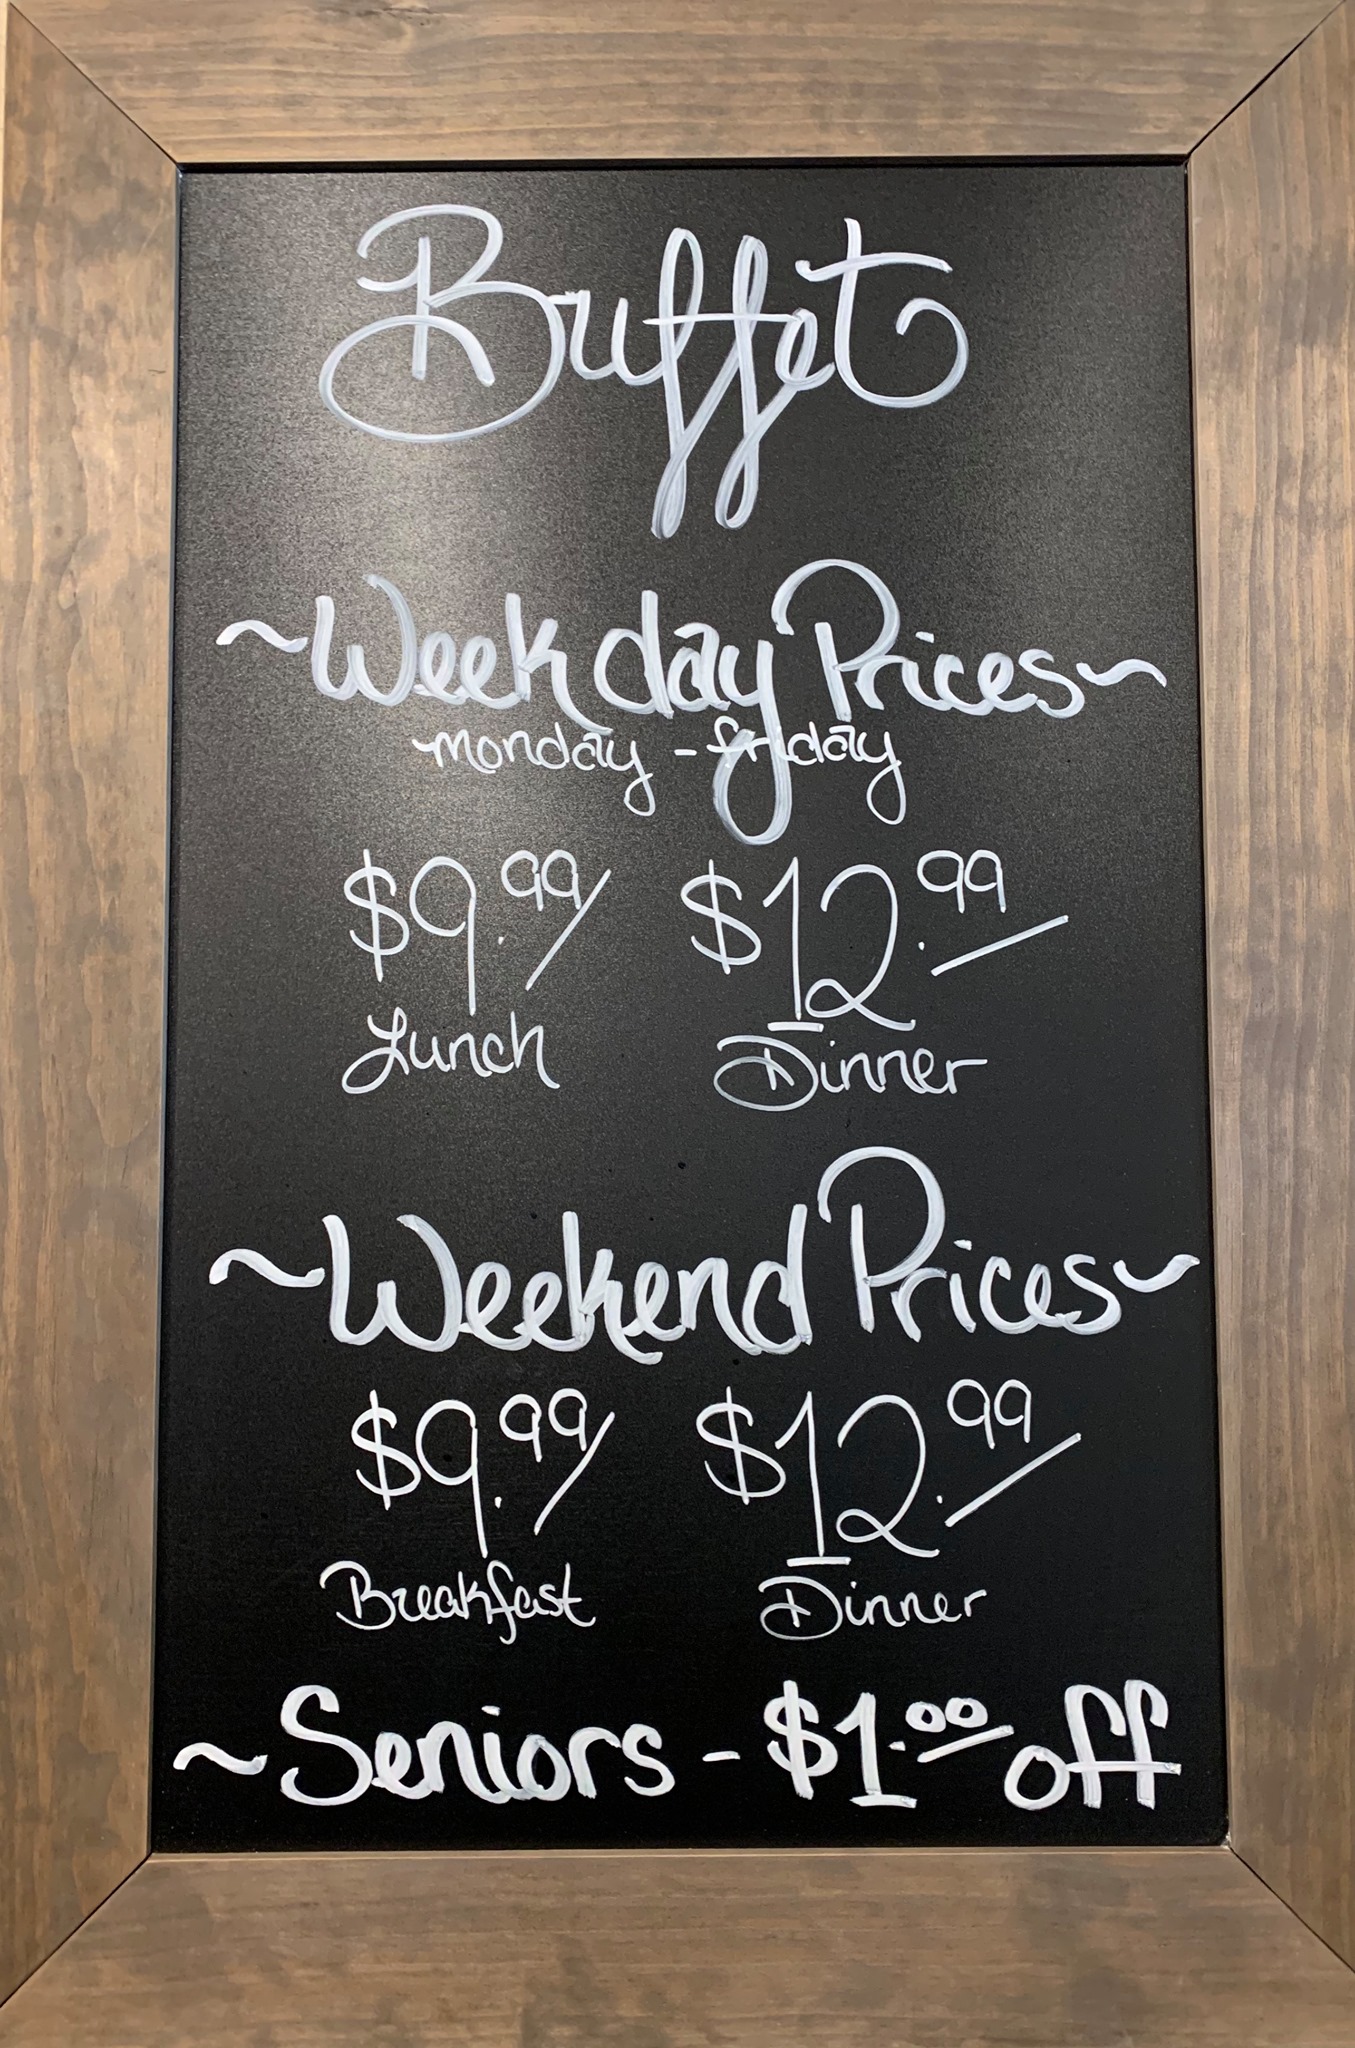 Buffet
~Weekday Prices~
monday - friday
$9.99/ $12.99/
Lunch Dinner
~Weekend Prices~
$9.99/ $12.99/
Breakfast Dinner
~Seniors - $1.00 off